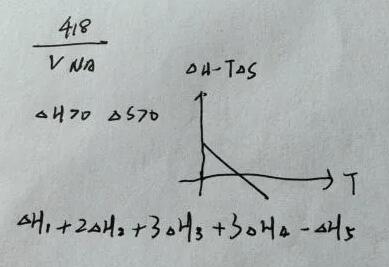 418
V NA
ΔH-TΔS
ΔH>0 ΔS>0
T
ΔH₁+2ΔH₂+3ΔH₃+3ΔH₄-ΔH₅